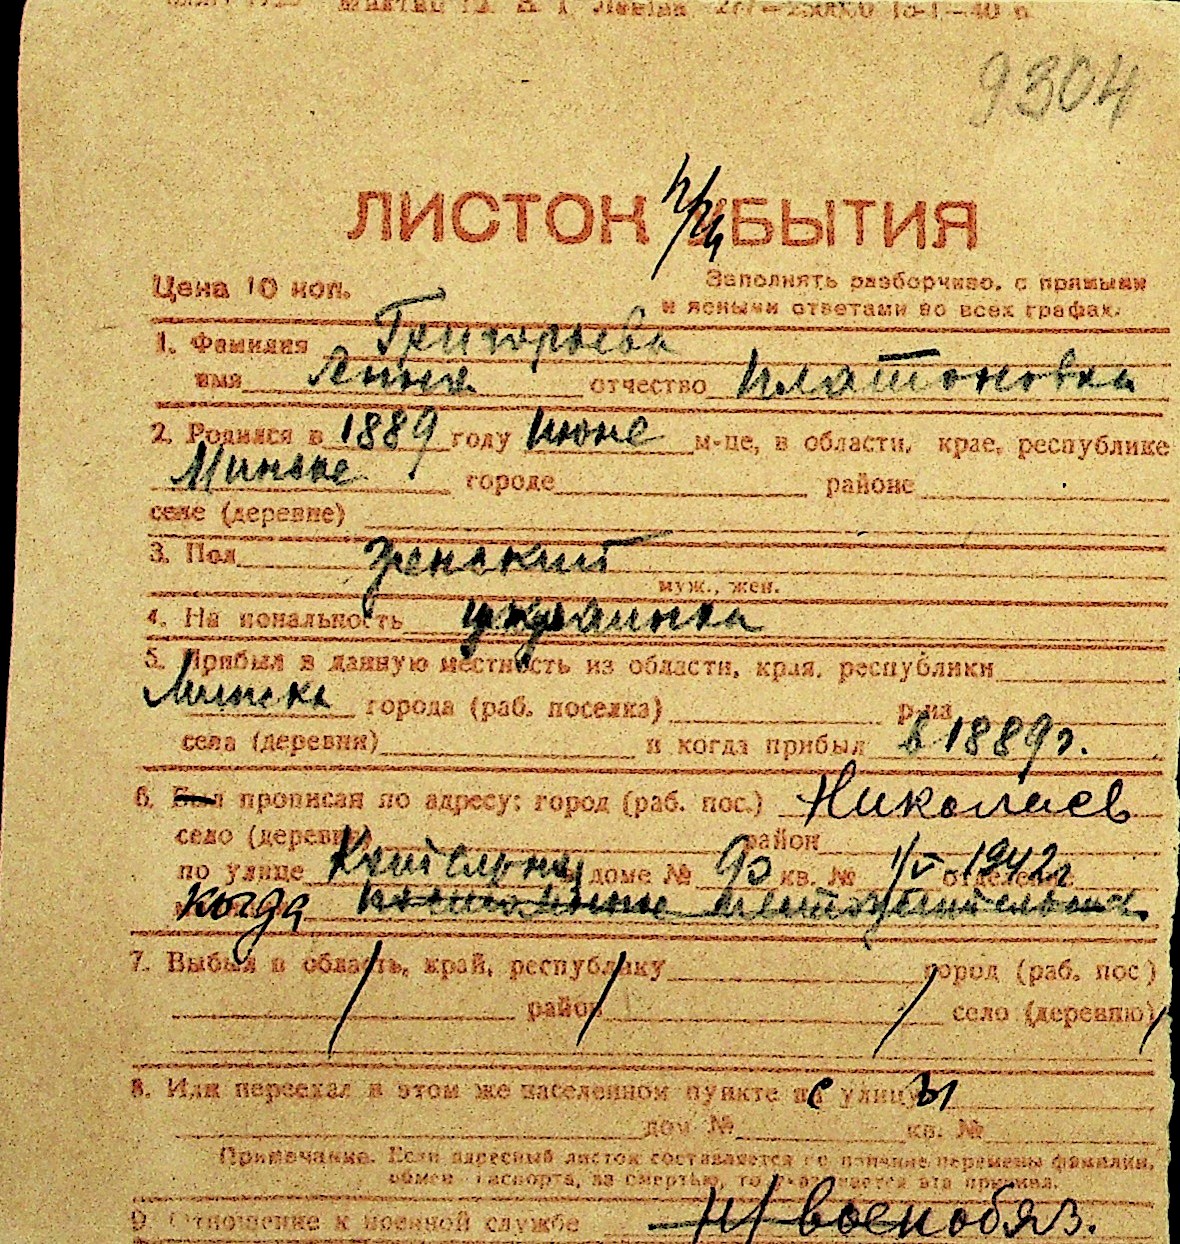 9304
ЛИСТОК при УБЫТИЯ
Цена 10 коп. Заполнять разборчиво, с прямыми
и ясными ответами во всех графах.
1. Фамилия Григорьева
имя Анна отчество Платоновна
2. Родился в 1889 году июне м-це, в области, крае, республике
Минске городе районе
селе (деревне)
3. Пол женский
муж., жен.
4. Национальность украинка
5. Прибыл в данную местность из области, края, республики
Минска города (раб. поселка) р-на
села (деревни) и когда прибыл в 1889 г.
6. Был прописан по адресу: город (раб. пос.) Николаев
село (деревня) район
по улице доме № 93 кв. № 1/V 1942 г отделение
когда
7. Выбыл в область, край, республику город (раб. пос)
район село (деревню)
8. Или переехал в этом же населенном пункте с улицы
дом № кв. №
Примечание. Если адресный листок составляется по причине перемены фамилии,
обмен паспорта, за смертью, то указывается эта причина.
9. Отношение к военной службе н/военобяз.